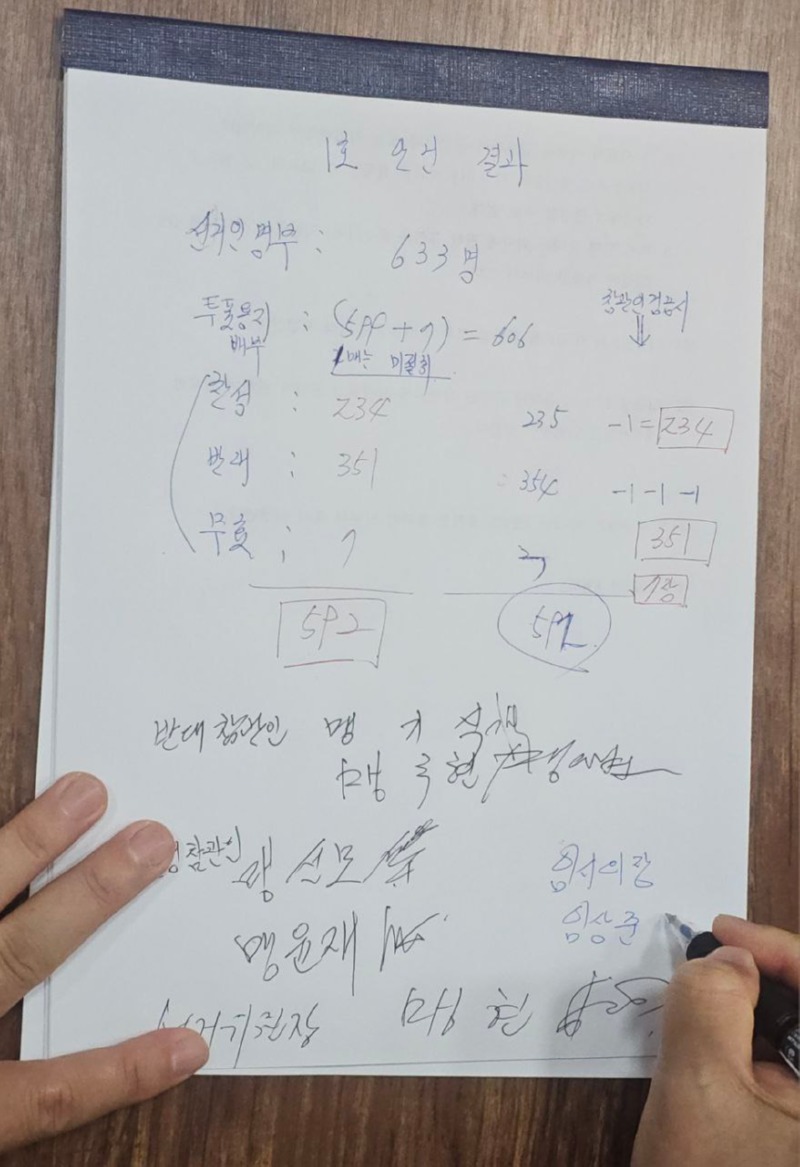 1호 안건 결과
선거인명부 : 633명
투표용지 배부 : (599 + 7) = 606
참관인검표시
찬성 : 234 235 -1 = 234
반대 : 351 354 -1 -1 -1
351
무효 : 7
7장
592 592
반대참관인 맹
맹 국현
참관인 맹선모
맹윤재
임시의장
임상준
선거관리위원장 맹현